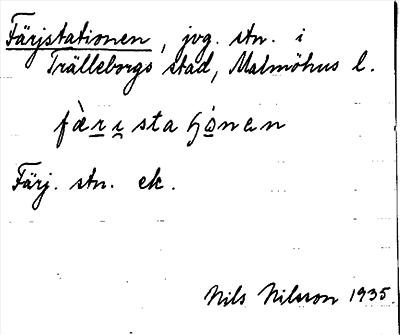 Färjstationen, jvg. stn. i
Trälleborgs stad, Malmöhus l.
Färj. stn. ek.
Nils Nilsson 1935.